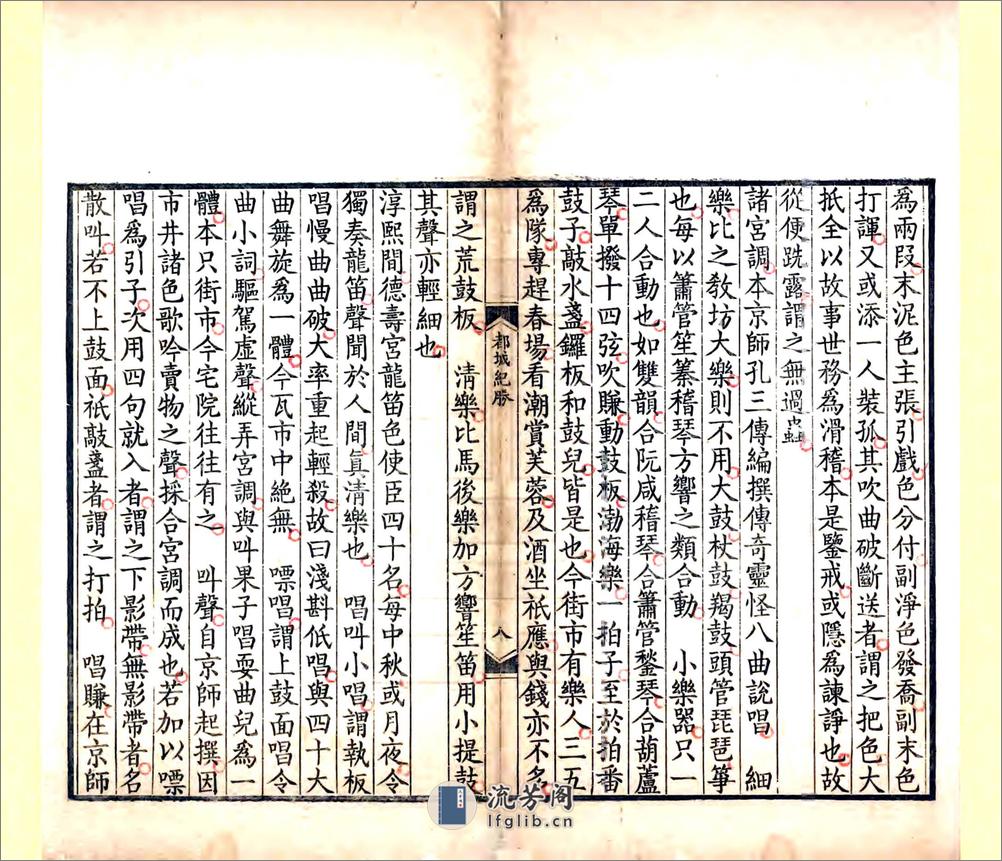 爲兩段末泥色主張引戲色分付副淨色發喬副末色
打諢又或添一人裝孤其吹曲破斷送者謂之把色大
抵全以故事世務爲滑稽本是鑒戒或隱爲諫諍也故
從便跣露謂之無過蟲
諸宮調本京師孔三傳編撰傳奇靈怪八曲說唱　細
樂比之教坊大樂則不用大鼓杖鼓羯鼓頭管琵琶箏
也每以簫管笙𥱧稽琴方響之類合動　小樂器只一
二人合動也如雙韻合阮咸稽琴合簫管鍫琴合葫蘆
琴單撥十四弦吹賺動鼓板渤海樂一拍子至於拍番
鼓子敲水盞鑼板和鼓兒皆是也今街市有樂人三五
爲隊專趕春場看潮賞芙蓉及酒坐祇應與錢亦不多
都城紀勝
八
謂之荒鼓板　清樂比馬後樂加方響笙笛用小提鼓
其聲亦輕細也
淳熙間德壽宮龍笛色使臣四十名每中秋或月夜令
獨奏龍笛聲聞於人間眞清樂也　唱叫小唱謂執板
唱慢曲曲破大率重起輕殺故曰淺斟低唱與四十大
曲舞旋爲一體今瓦市中絕無　嘌唱謂上鼓面唱令
曲小詞驅駕虛聲縱弄宮調與叫果子唱耍曲兒爲一
體本只街市今宅院往往有之　叫聲自京師起撰因
市井諸色歌吟賣物之聲採合宮調而成也若加以嘌
唱爲引子次用四句就入者謂之下影帶無影帶者名
散叫若不上鼓面祇敲盞者謂之打拍　唱賺在京師
流芳阁
lfglib.cn